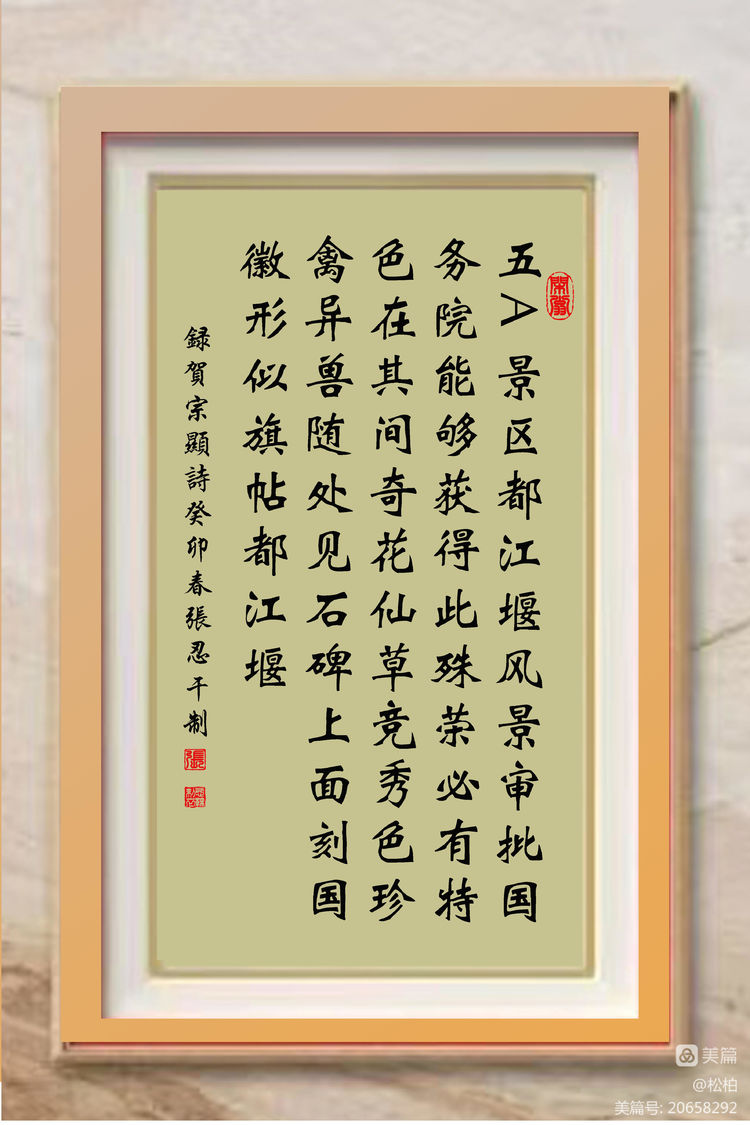 五A景区都江堰风景审批国
务院能够获得此殊荣必有特
色在其间奇花仙草竞秀色珍
禽异兽随处见石碑上面刻国
徽形似旗帖都江堰
録賀宗顯詩癸卯春張忍干制
張
美篇
@松柏
美篇号: 20658292